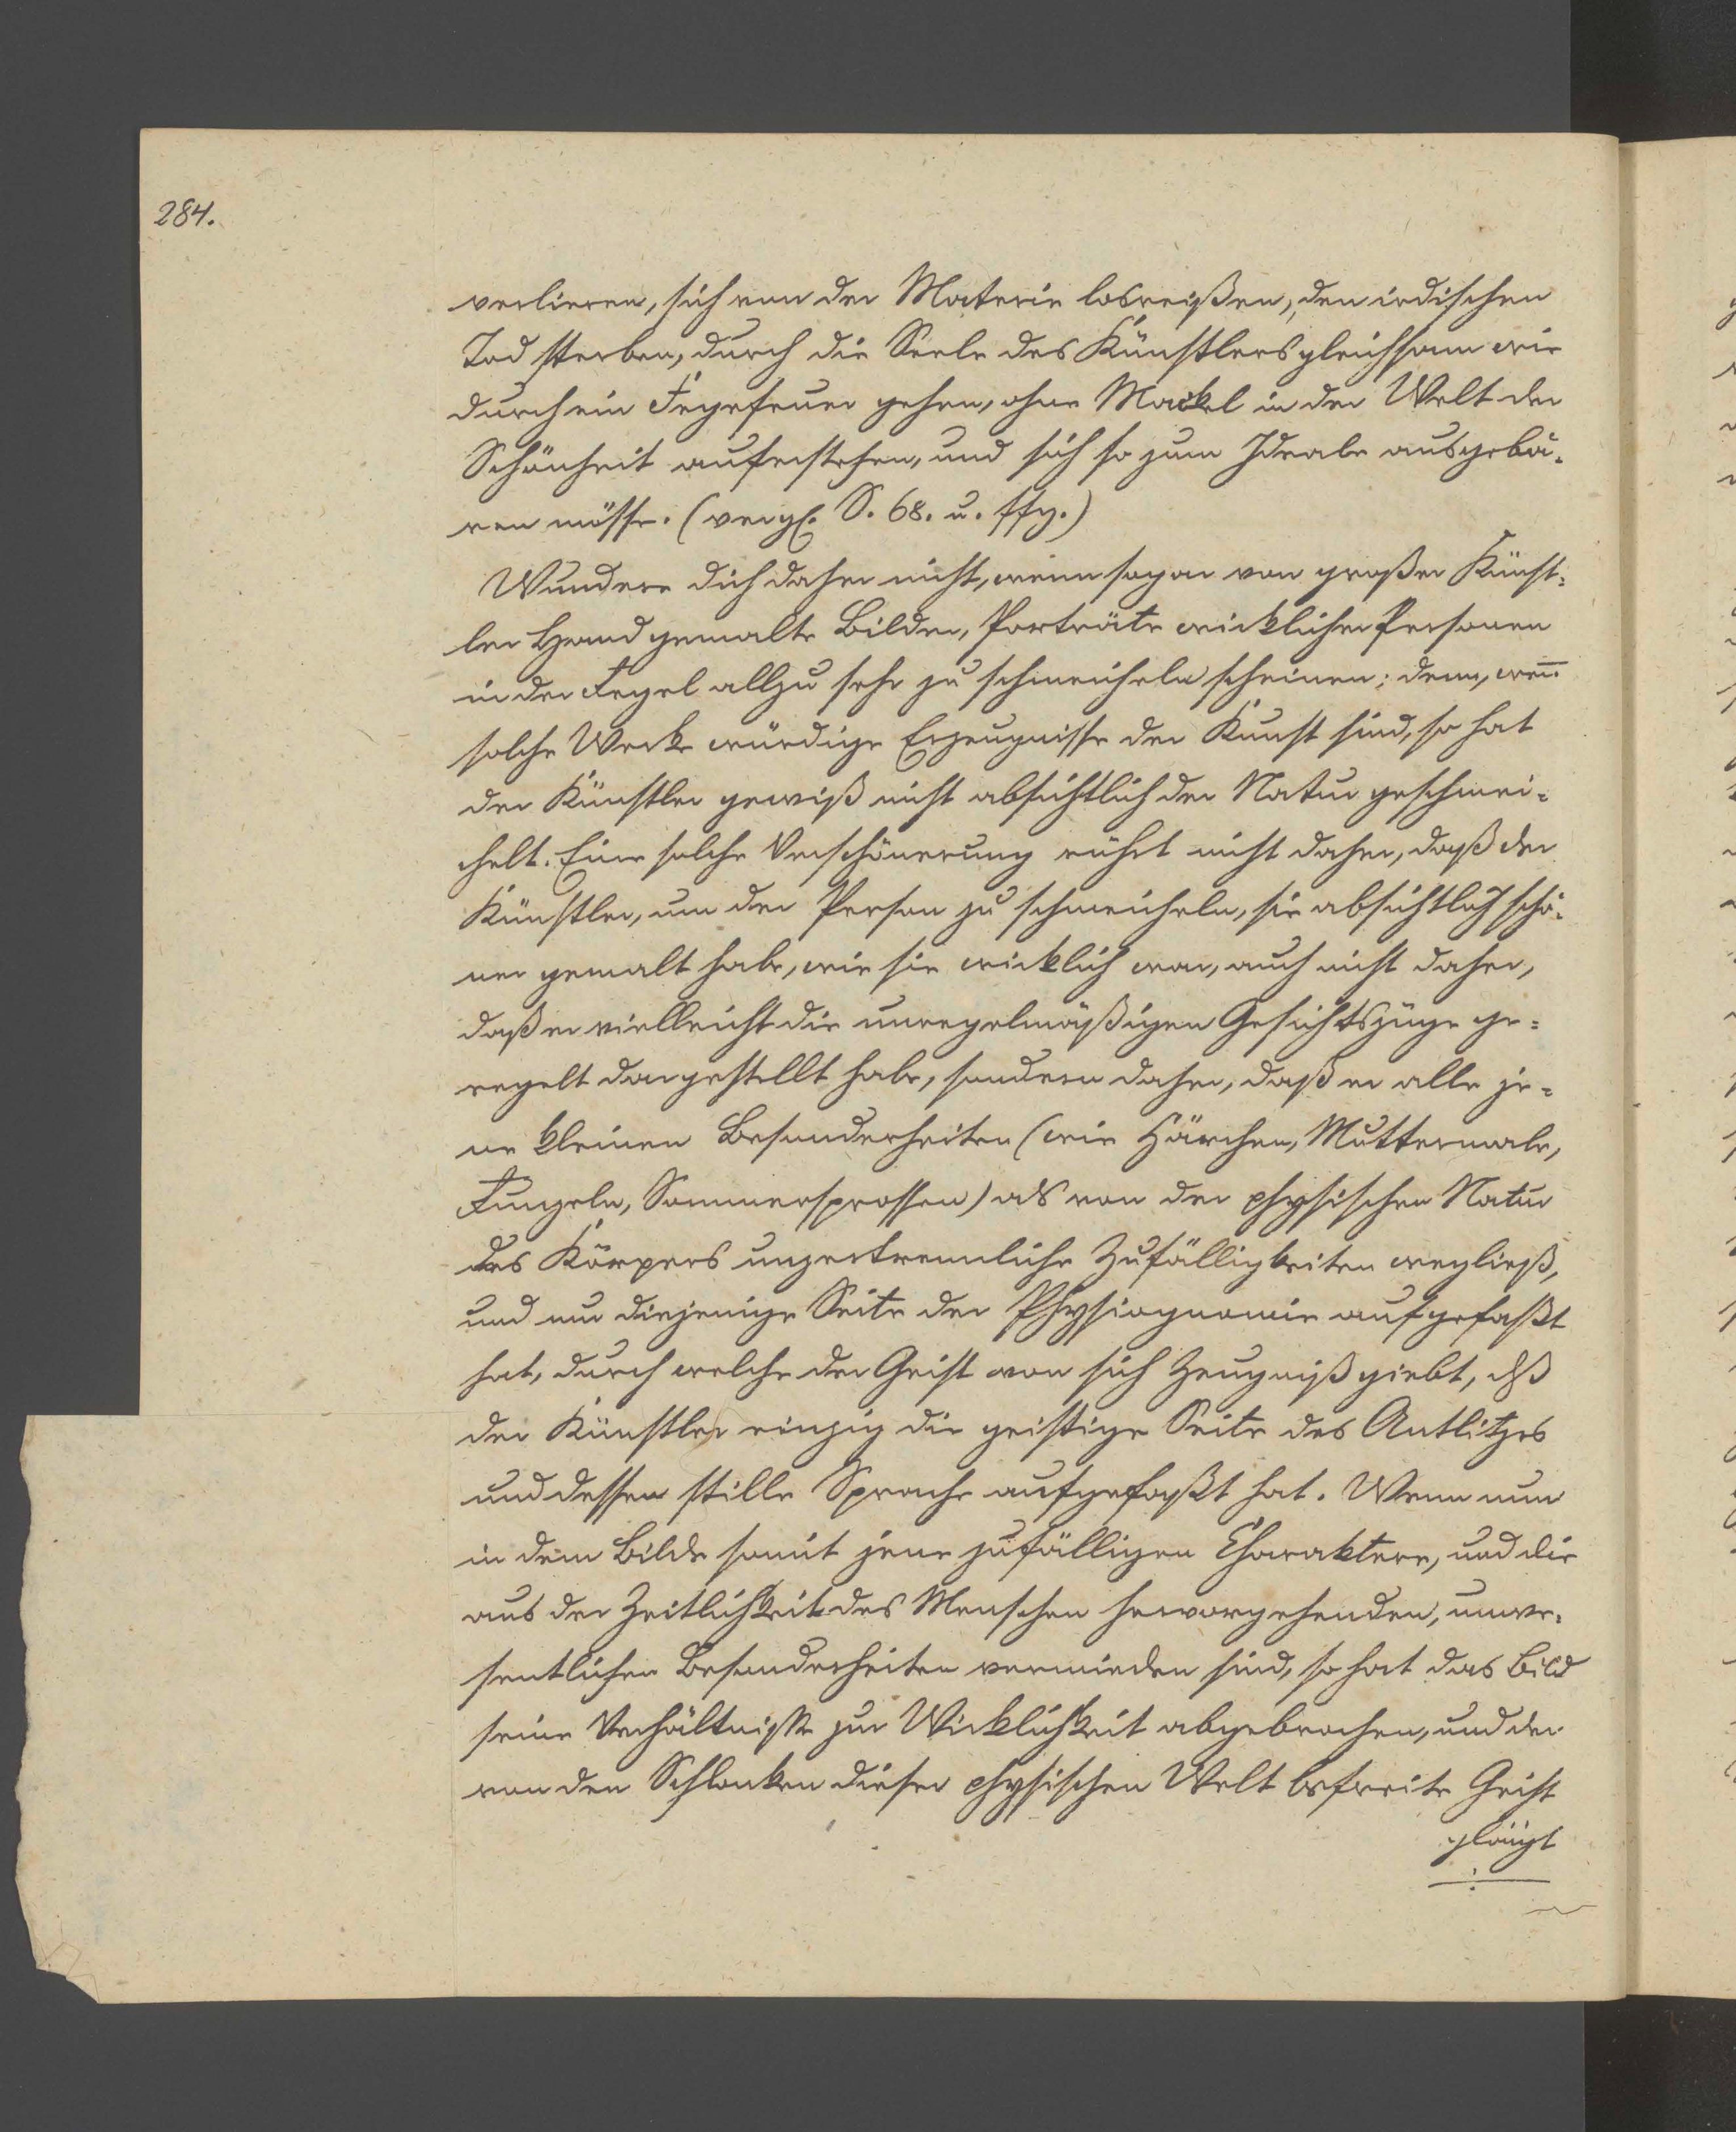 284.
verlieren, sich von der Materie losreißen, den irdischen
Tod sterben, durch die Seele des Künstlers gleichsam wie
durch ein Fegefeuer gehen, ohne Mackel in der Welt der
Schönheit auferstehen, und sich so zum Ideale ausgebä-
ren müsse. (vergl. S. 68. u. ffg.)
Wundere dich daher nicht, wenn sogar von großer Künst-
ler Hand gemalte Bilder, Porträte wirklicher Personen
in der Regel allzu sehr zu schmeicheln scheinen; denn, wen̅
solche Werke würdige Erzeugnisse der Kunst sind, so hat
der Künstler gewiß nicht absichtlich der Natur geschmei-
chelt. Eine solche Verschönerung rührt nicht daher, daß der
Künstler, um der Person zu schmeicheln, sie absichtlich schö-
ner gemalt habe, wie sie wirklich war, auch nicht daher,
daß er vielleicht die unregelmäßigen Gesichtszüge ge-
regelt dargestellt habe, sondern daher, daß er alle je-
ne kleinen Besonderheiten (wie Härchen, Muttermale,
Runzeln, Sommersprossen) als von der physischen Natur
des Körpers unzertrennliche Zufälligkeiten wegließ,
und nur diejenige Seite der Physiognomie aufgefaßt
hat, durch welche der Geist von sich Zeugniß giebt, dß
der Künstler einzig die geistige Seite des Antlitzes
und dessen stille Sprache aufgefaßt hat. Wenn nun
in dem Bilde somit jene zufälligen Charaktere, und die
aus der Zeitlichkeit des Menschen hervorgehenden, unwe-
sentlichen Besonderheiten vermieden sind, so hat das Bild
seine Verhältniße zur Wirklichkeit abgebrochen, und der
von den Schlacken dieser physischen Welt befreite Geist